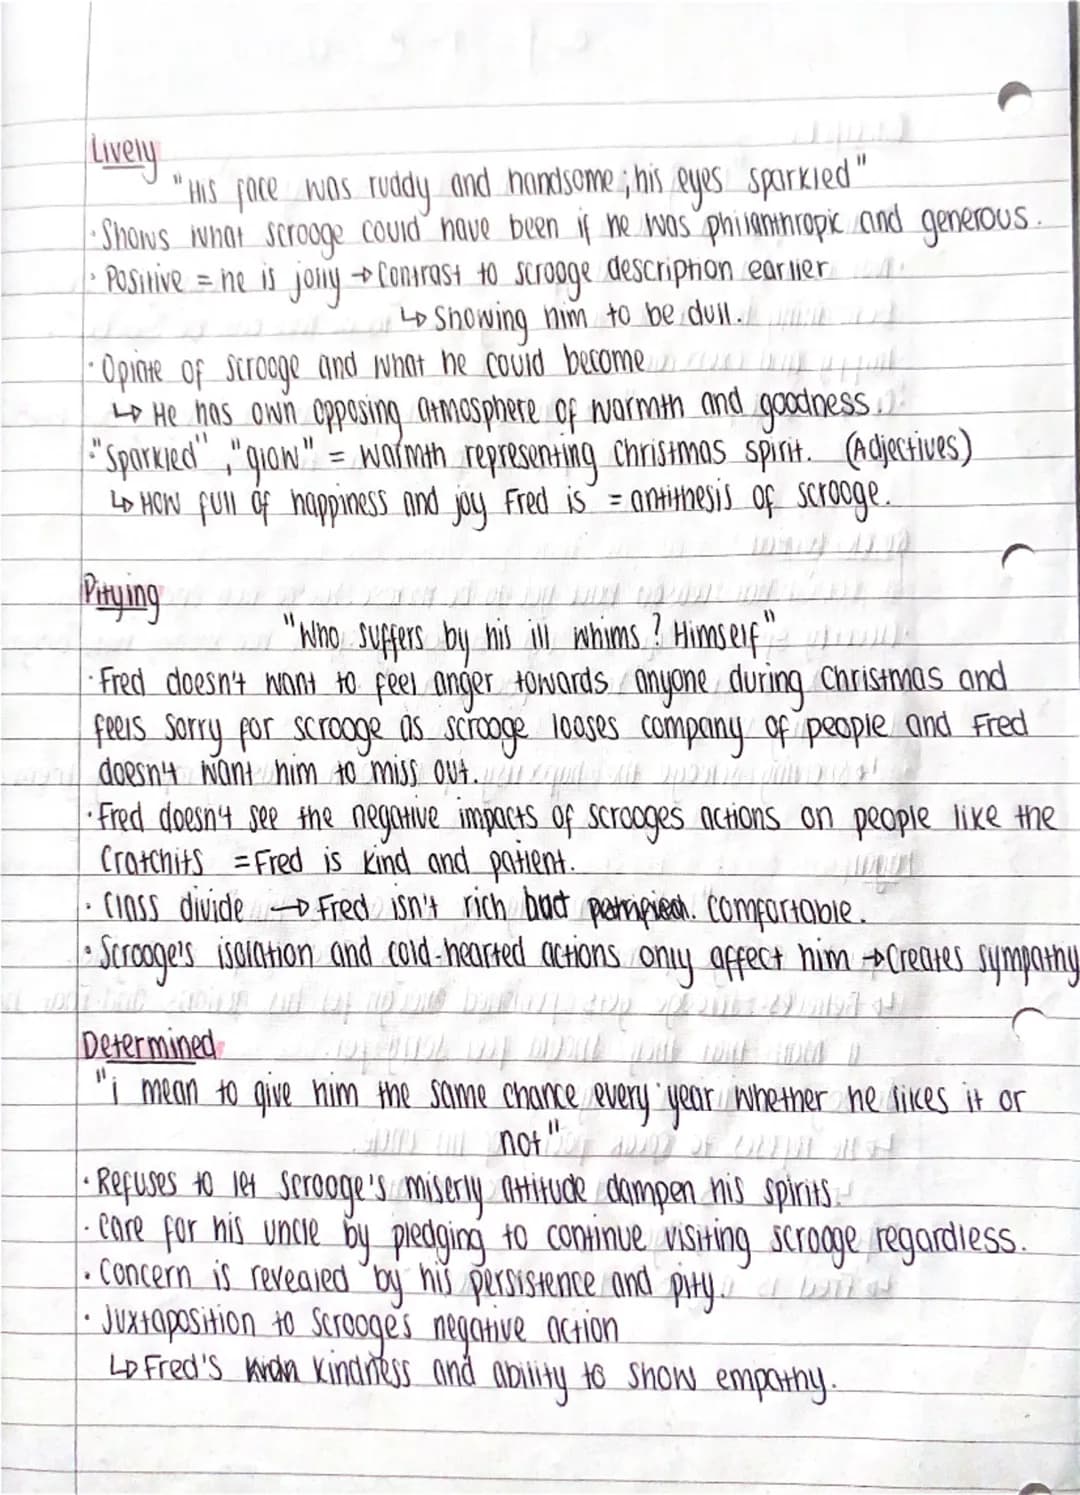 Lively
"His face was ruddy and handsome; his eyes sparkled"
· Shows what scrooge could have been if he was philanthropic and generous.
· Positive = he is jolly → Contrast to scrooge description earlier
↳ Showing him to be dull.
· Opiate of scrooge and what he could become
↳ He has own opposing atmosphere of warmth and goodness.
· "Sparkled", "glow" = warmth representing Christmas spirit. (Adjectives)
↳ How full of happiness and joy Fred is = antithesis of scrooge.
Pitying
"Who suffers by his ill whims? Himself"
· Fred doesn't want to feel anger towards anyone during Christmas and
feels sorry for scrooge as scrooge looses company of people and Fred
doesn't want him to miss out.
· Fred doesn't see the negative impacts of scrooges actions on people like the
Cratchits = Fred is kind and patient.
· Class divide → Fred isn't rich but comfortable.
· Scrooge's isolation and cold-hearted actions only affect him → Creates sympathy
Determined
"i mean to give him the same chance every year whether he likes it or
not"
· Refuses to let scrooge's miserly attitude dampen his spirits.
· Care for his uncle by pledging to continue visiting scrooge regardless.
· Concern is revealed by his persistence and pity.
· Juxtaposition to Scrooges negative action
↳ Fred's kindness and ability to show empathy.